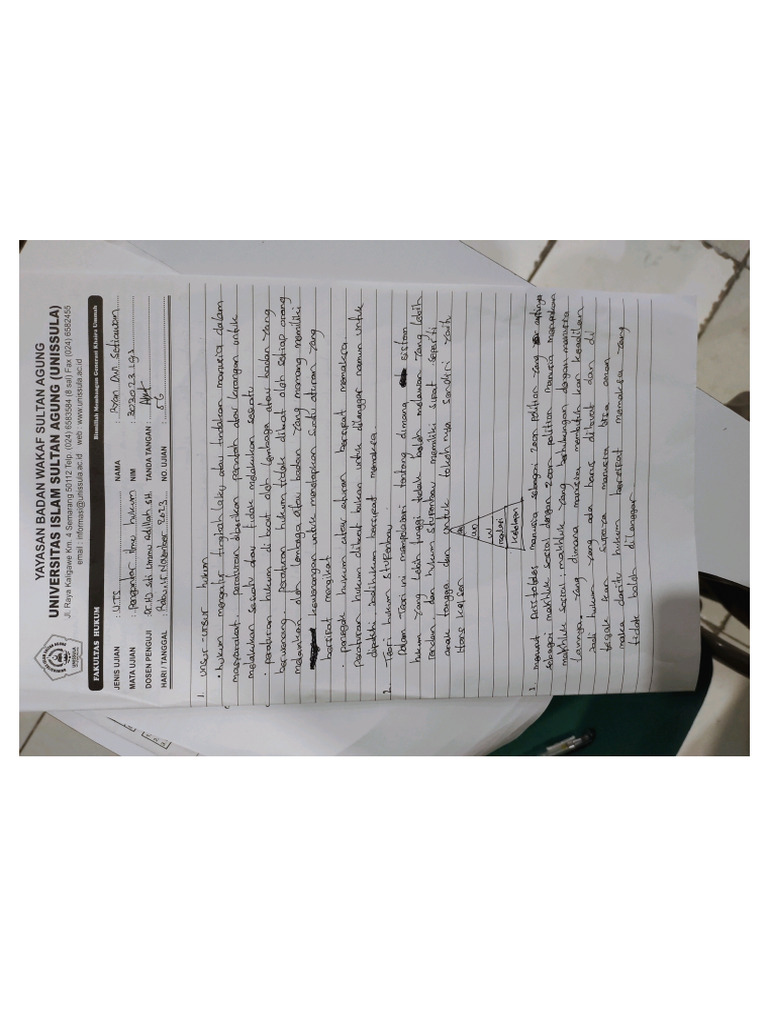 YAYASAN BADAN WAKAF SULTAN AGUNG
UNIVERSITAS ISLAM SULTAN AGUNG (UNISSULA)
Jl. Raya Kaligawe Km. 4 Semarang 50112 Telp. (024) 6583584 (8 sal) Fax (024) 6582455
email : informasi@unissula.ac.id web : www.unissula.ac.id
FAKULTAS HUKUM
Bismillah Membangun Generasi Khaira Ummah
JENIS UJIAN : UTS
NAMA : Ryan Dwi Setiawan
MATA UJIAN : Pengantar ilmu hukum
NIM
DOSEN PENGUJI
TANDA TANGAN :
HARI / TANGGAL : Rabu, 15 November 2023
NO. UJIAN : 56
1. unsur-unsur hukum
• hukum mengatur tingkah laku atau tindakan manusia dalam
masyarakat. peraturan diberikan perintah atau larangan untuk
melakukan sesuatu atau tidak melakukan sesuatu
• peraturan hukum di buat oleh lembaga atau badan yang
berwenang. peraturan hukum tidak dibuat oleh setiap orang
melainkan oleh lembaga atau badan yang memang memiliki
kewenangan untuk menetapkan suatu aturan yang
bersifat mengikat
• penegak hukum atau aturan bersifat memaksa.
peraturan hukum dibuat bukan untuk dilanggar namun untuk
dipatuhi. Jadi hukum bersifat memaksa.
2. Teori hukum stufenbau
Dalam Teori ini mempelajari tentang dimana sistem
hukum yang lebih tinggi tidak boleh melawan yang lebih
rendah dan hukum stufenbau memiliki sifat seperti
anak tangga dan untuk tokoh nya sendiri yaitu
Hans kelsen
UU
3. menurut Aristoteles manusia sebagai zoon polition yang artinya
sebagai makhluk sosial dengan zoon polition manusia merupakan
makhluk sosial, makhluk yang berhubungan dengan manusia
lainnya. yang dimana manusia membutuhkan keadilan
Jadi hukum yang ada harus dibuat dan di
tegakkan supaya manusia bisa aman
maka dari itu hukum bersifat memaksa yang
tidak boleh dilanggar